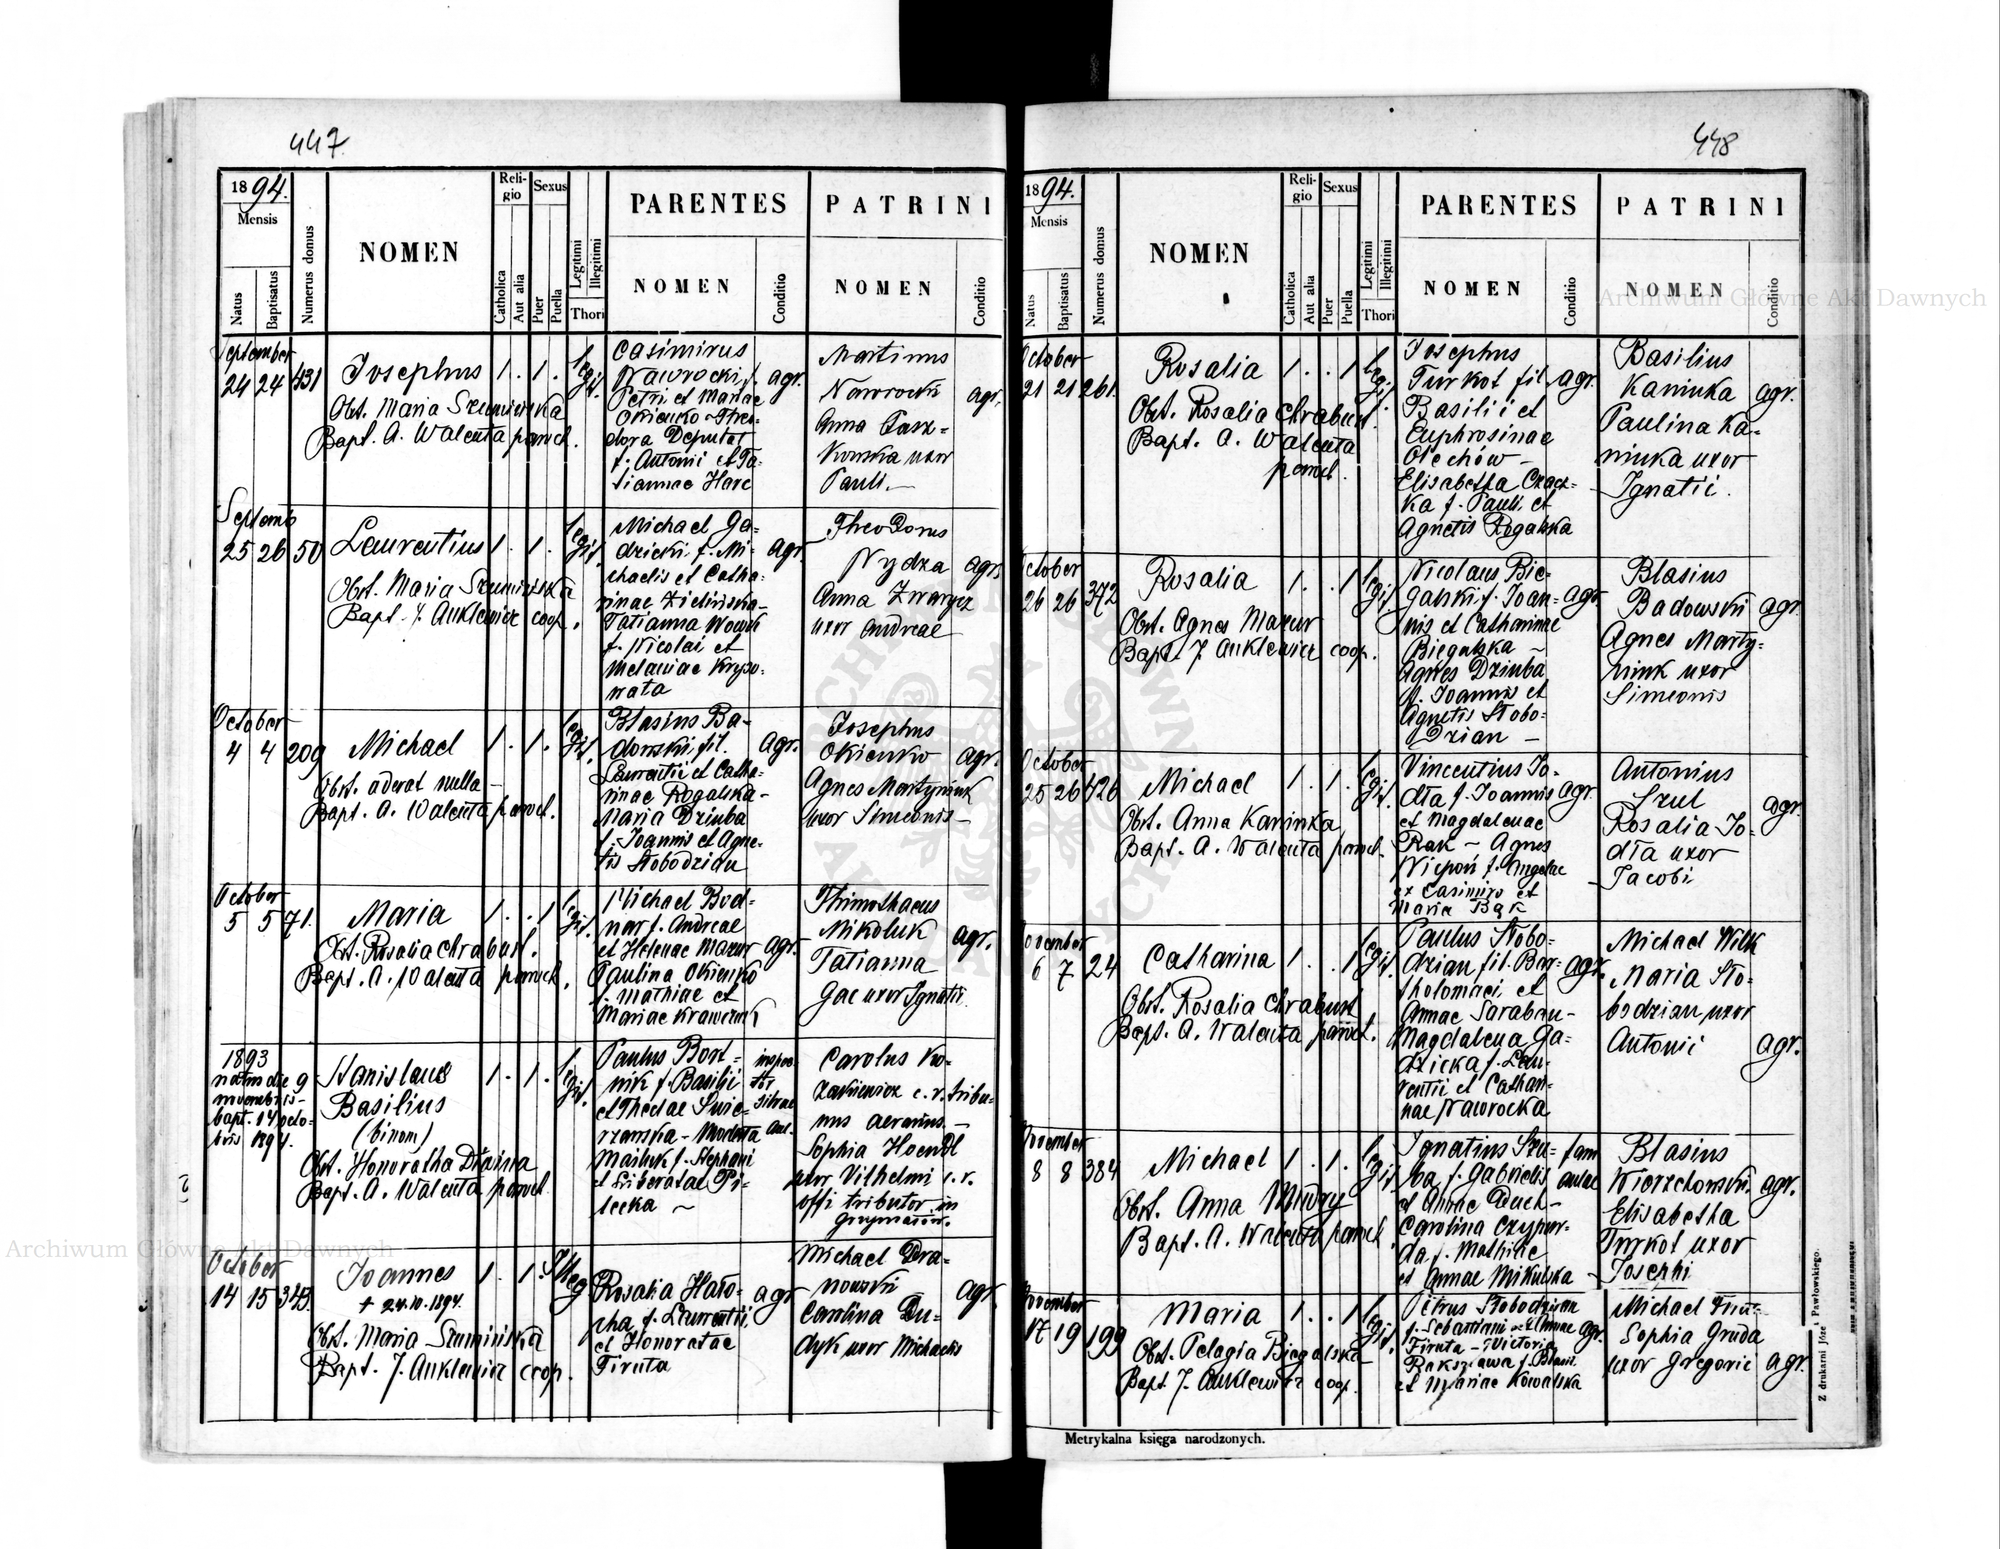 447
1894.
Mensis
Natus
Baptisatus
Numerus domus
NOMEN
Religio
Catholica
Aut alia
Sexus
Puer
Puella
Legitimi
Illegitimi
Thori
PARENTES
NOMEN
Conditio
PATRINI
NOMEN
Conditio
September
24 24 431 Josephus 1. 1. legit.
Obst. Maria Szuminska
Bapt. A. Walenta paroch.
Casimirus
Nawrocki f. agr.
Petri et Mariae
Okienko - Theo-
dora Deputat
f. Antonii et Ta-
tiannae Harc
Martinus
Nawrocki agr.
Anna Pasz-
kowska uxor
Pauli.
Septemb
25 26 50 Laurentius 1. 1. legit.
Obst. Maria Szuminska
Bapt. J. Anklewicz coop.
Michael Ga-
dzicki f. Mi- agr.
chaelis et Catha-
rinae Zielinska -
Tatianna Wowk
f. Nicolai et
Melaniae Krypo-
wata
Theodorus
Nydza agr.
Anna Zwarycz
uxor Andreae
October
4 4 209 Michael 1. 1. legit.
Obst. aderat nulla -
Bapt. A. Walenta paroch.
Blasius Ba-
dowski fil. agr.
Laurentii et Catha-
rinae Rogalska -
Maria Dziuba
f. Joannis et Agne-
tis Słobodzian
Josephus
Okienko agr.
Agnes Martyniuk
uxor Simeonis -
October
5 5 71. Maria 1. . 1 legit.
Obst. Rosalia Chrabust.
Bapt. A. Walenta paroch.
Michael Bod-
nar f. Andreae
et Helenae Mazur agr.
Paulina Okienko
f. Mathiae et
Mariae Krawczuk
Thimothaeus
Mikoluk agr.
Tatianna
Gac uxor Ignatii.
1893
natus die 9
novembris -
bapt. 14 octo-
bris 1894.
Stanislaus 1. 1. legit.
Basilius
(binom)
Obst. Honoratha Dłażna
Bapt. A. Walenta paroch.
Paulus Bort-
nik f. Basilii
et Theclae Swie-
rzawska - Modesta
Mailuk f. Stephani
et Liberatae Pi-
lecka -
inspec-
tor
silvae
Carolus Ko-
zakiewicz c. r. tribu-
nus aerarius. -
Sophia Hoendl
uxor Vilhelmi c. r.
offi tributor. in
Grzymałów.
October
14 15 343. Joannes 1. 1. Illeg
+ 24.10.1894.
Obst. Maria Szuminska
Bapt. J. Anklewicz coop.
Rosalia Hało- agr
cha f. Laurentii,
et Honoratae
Firuta
Michael Dra-
nowski agr.
Carolina Du-
dyk uxor Michaelis
448
1894.
Mensis
Natus
Baptisatus
Numerus domus
NOMEN
Religio
Catholica
Aut alia
Sexus
Puer
Puella
Legitimi
Illegitimi
Thori
PARENTES
NOMEN
Conditio
PATRINI
NOMEN
Conditio
October
21 21 261. Rosalia 1. . 1 legit.
Obst. Rosalia Chrabust.
Bapt. A. Walenta
paroch.
Josephus
Turkot fil. agr.
Basilii et
Euphrosinae
Olechów -
Elisabetha Czacz-
ka f. Pauli et
Agnetis Rogalska
Basilius
Kaminka agr.
Paulina Ka-
minka uxor
Ignatii.
October
26 26 372 Rosalia 1. . 1 legit.
Obst. Agnes Mazur
Bapt. J. Anklewicz coop.
Nicolaus Bie-
galski f. Joan- agr.
nis et Catharinae
Biegalska -
Agnes Dziuba
f. Joannis et
Agnetis Słobo-
dzian -
Blasius
Badowski agr.
Agnes Marty-
niuk uxor
Simeonis
October
25 26 426 Michael 1. 1. legit.
Obst. Anna Kaminka
Bapt. A. Walenta paroch.
Vincentius Jo-
dła f. Joannis agr.
et Magdalenae
Rak - Agnes
Niepoń f. Angelae
ex Casimiro et
Maria Bąk
Antonius
Szul agr.
Rosalia Jo-
dła uxor
Jacobi
November
6 7 24 Catharina 1. . 1 legit.
Obst. Rosalia Chrabust
Bapt. A. Walenta paroch.
Paulus Słobo-
dzian fil. Bar- agr.
tholomaei, et
Annae Saraban -
Magdalena Ga-
dzicka f. Lau-
rentii et Cathari-
nae Nawrocka
Michael Wilk
Maria Sło-
bodzian uxor
Antonii agr.
November
8 8 384 Michael 1. 1. legit.
Obst. Anna Mudry
Bapt. A. Walenta paroch.
Ignatius Szu-
ba f. Gabrielis
et Annae Duch -
Carolina Czypur-
da f. Mathiae
et Annae Mikulska -
Blasius
Wierzchowski. agr.
Elisabetha
Turkot uxor
Josephi
November
17 19 199 Maria 1. . 1 legit.
Obst. Pelagia Biegalska -
Bapt J. Anklewicz coop.
Petrus Słobodzian
f. Sebastiani et Annae agr.
Firuta - Victoria
Rakszawa f. Blasii
et Mariae Kowalska
Michael
Sophia Gruda
uxor Gregorii agr.
Metrykalna księga narodzonych.
Z drukarni Józefa Pawłowskiego.
Archiwum Główne Akt Dawnych
Archiwum Główne Akt Dawnych